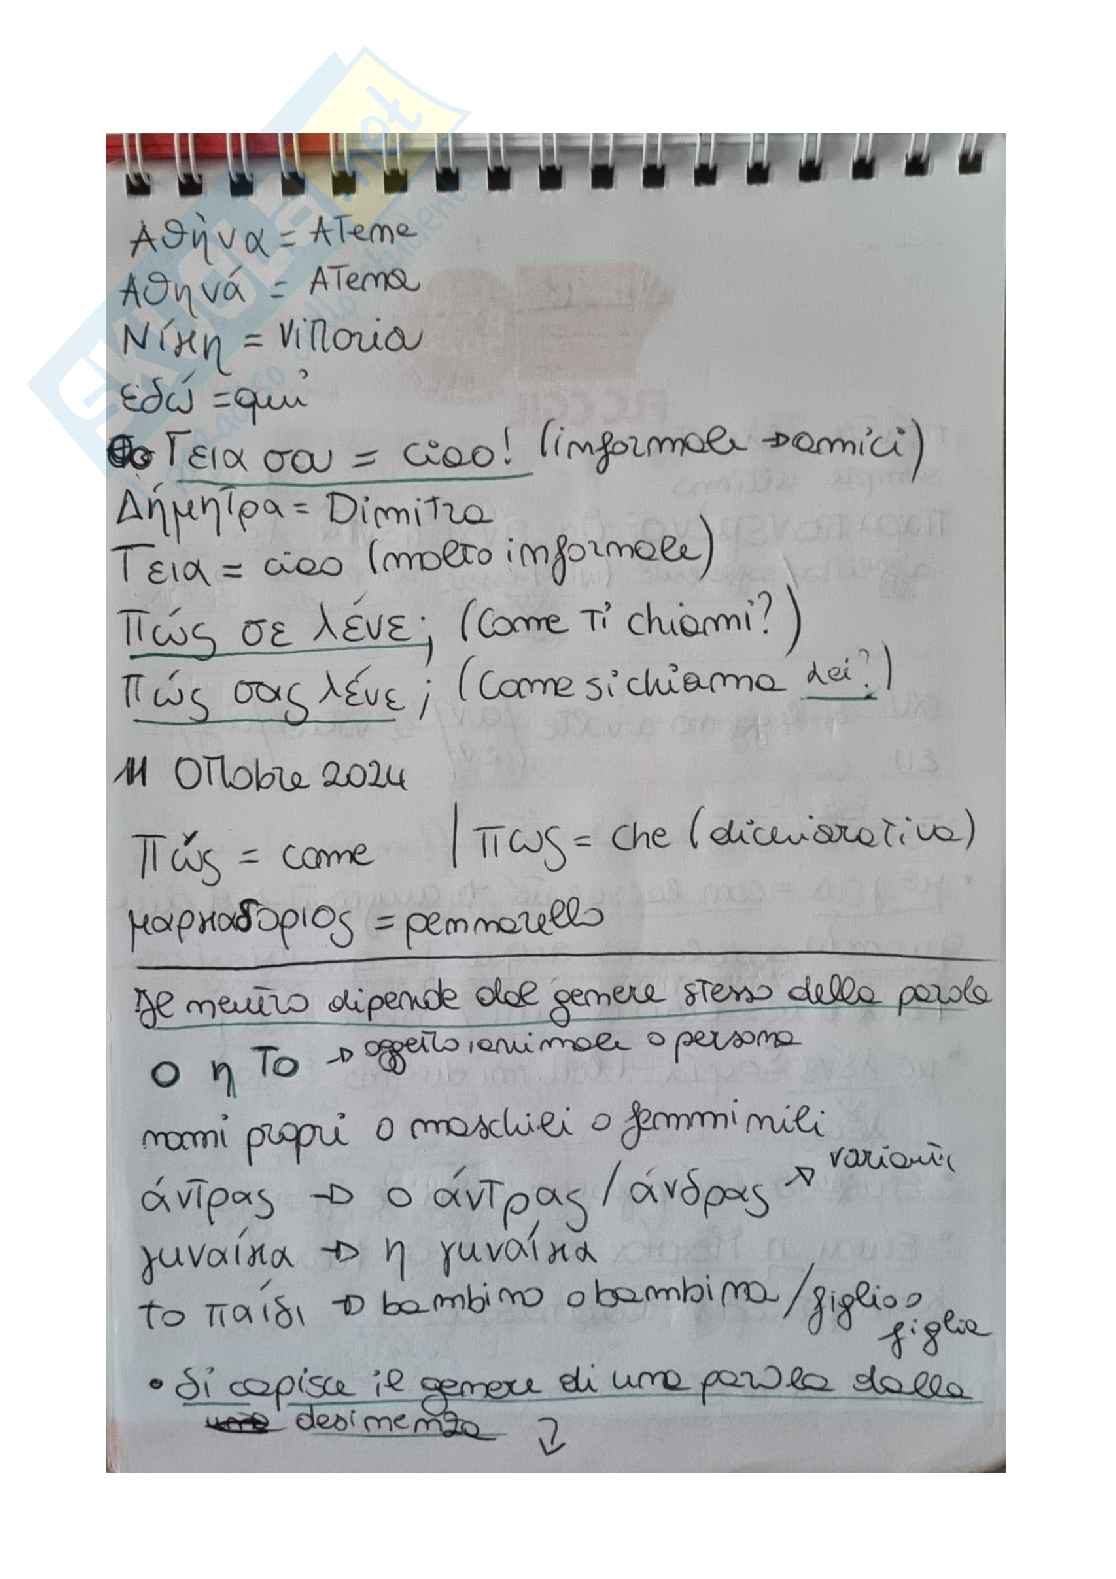 Αθήνα = ATene
Αθηνά = ATena
Νίκη = Vittoria
εδώ = qui
Γεια σου = ciao! (informale → amici)
Δήμητρα = Dimitra
Γεια = ciao (molto informale)
Πώς σε λένε; (Come ti chiami?)
Πώς σας λένε; (Come si chiama lei?)
11 Ottobre 2024
Πώς = come | πως = che (dichiarativa)
μαρκαδόριος = pennarello
Il neutro dipende dal genere stesso della parola
ο η το → oggetto, animale o persona
nomi propri o maschili o femminili
άντρας → ο άντρας / άνδρας → varianti
γυναίκα → η γυναίκα
το παίδι → bambino o bambina / figlio o
figlia
• Si capisce il genere di una parola dalla
desinenza ↓